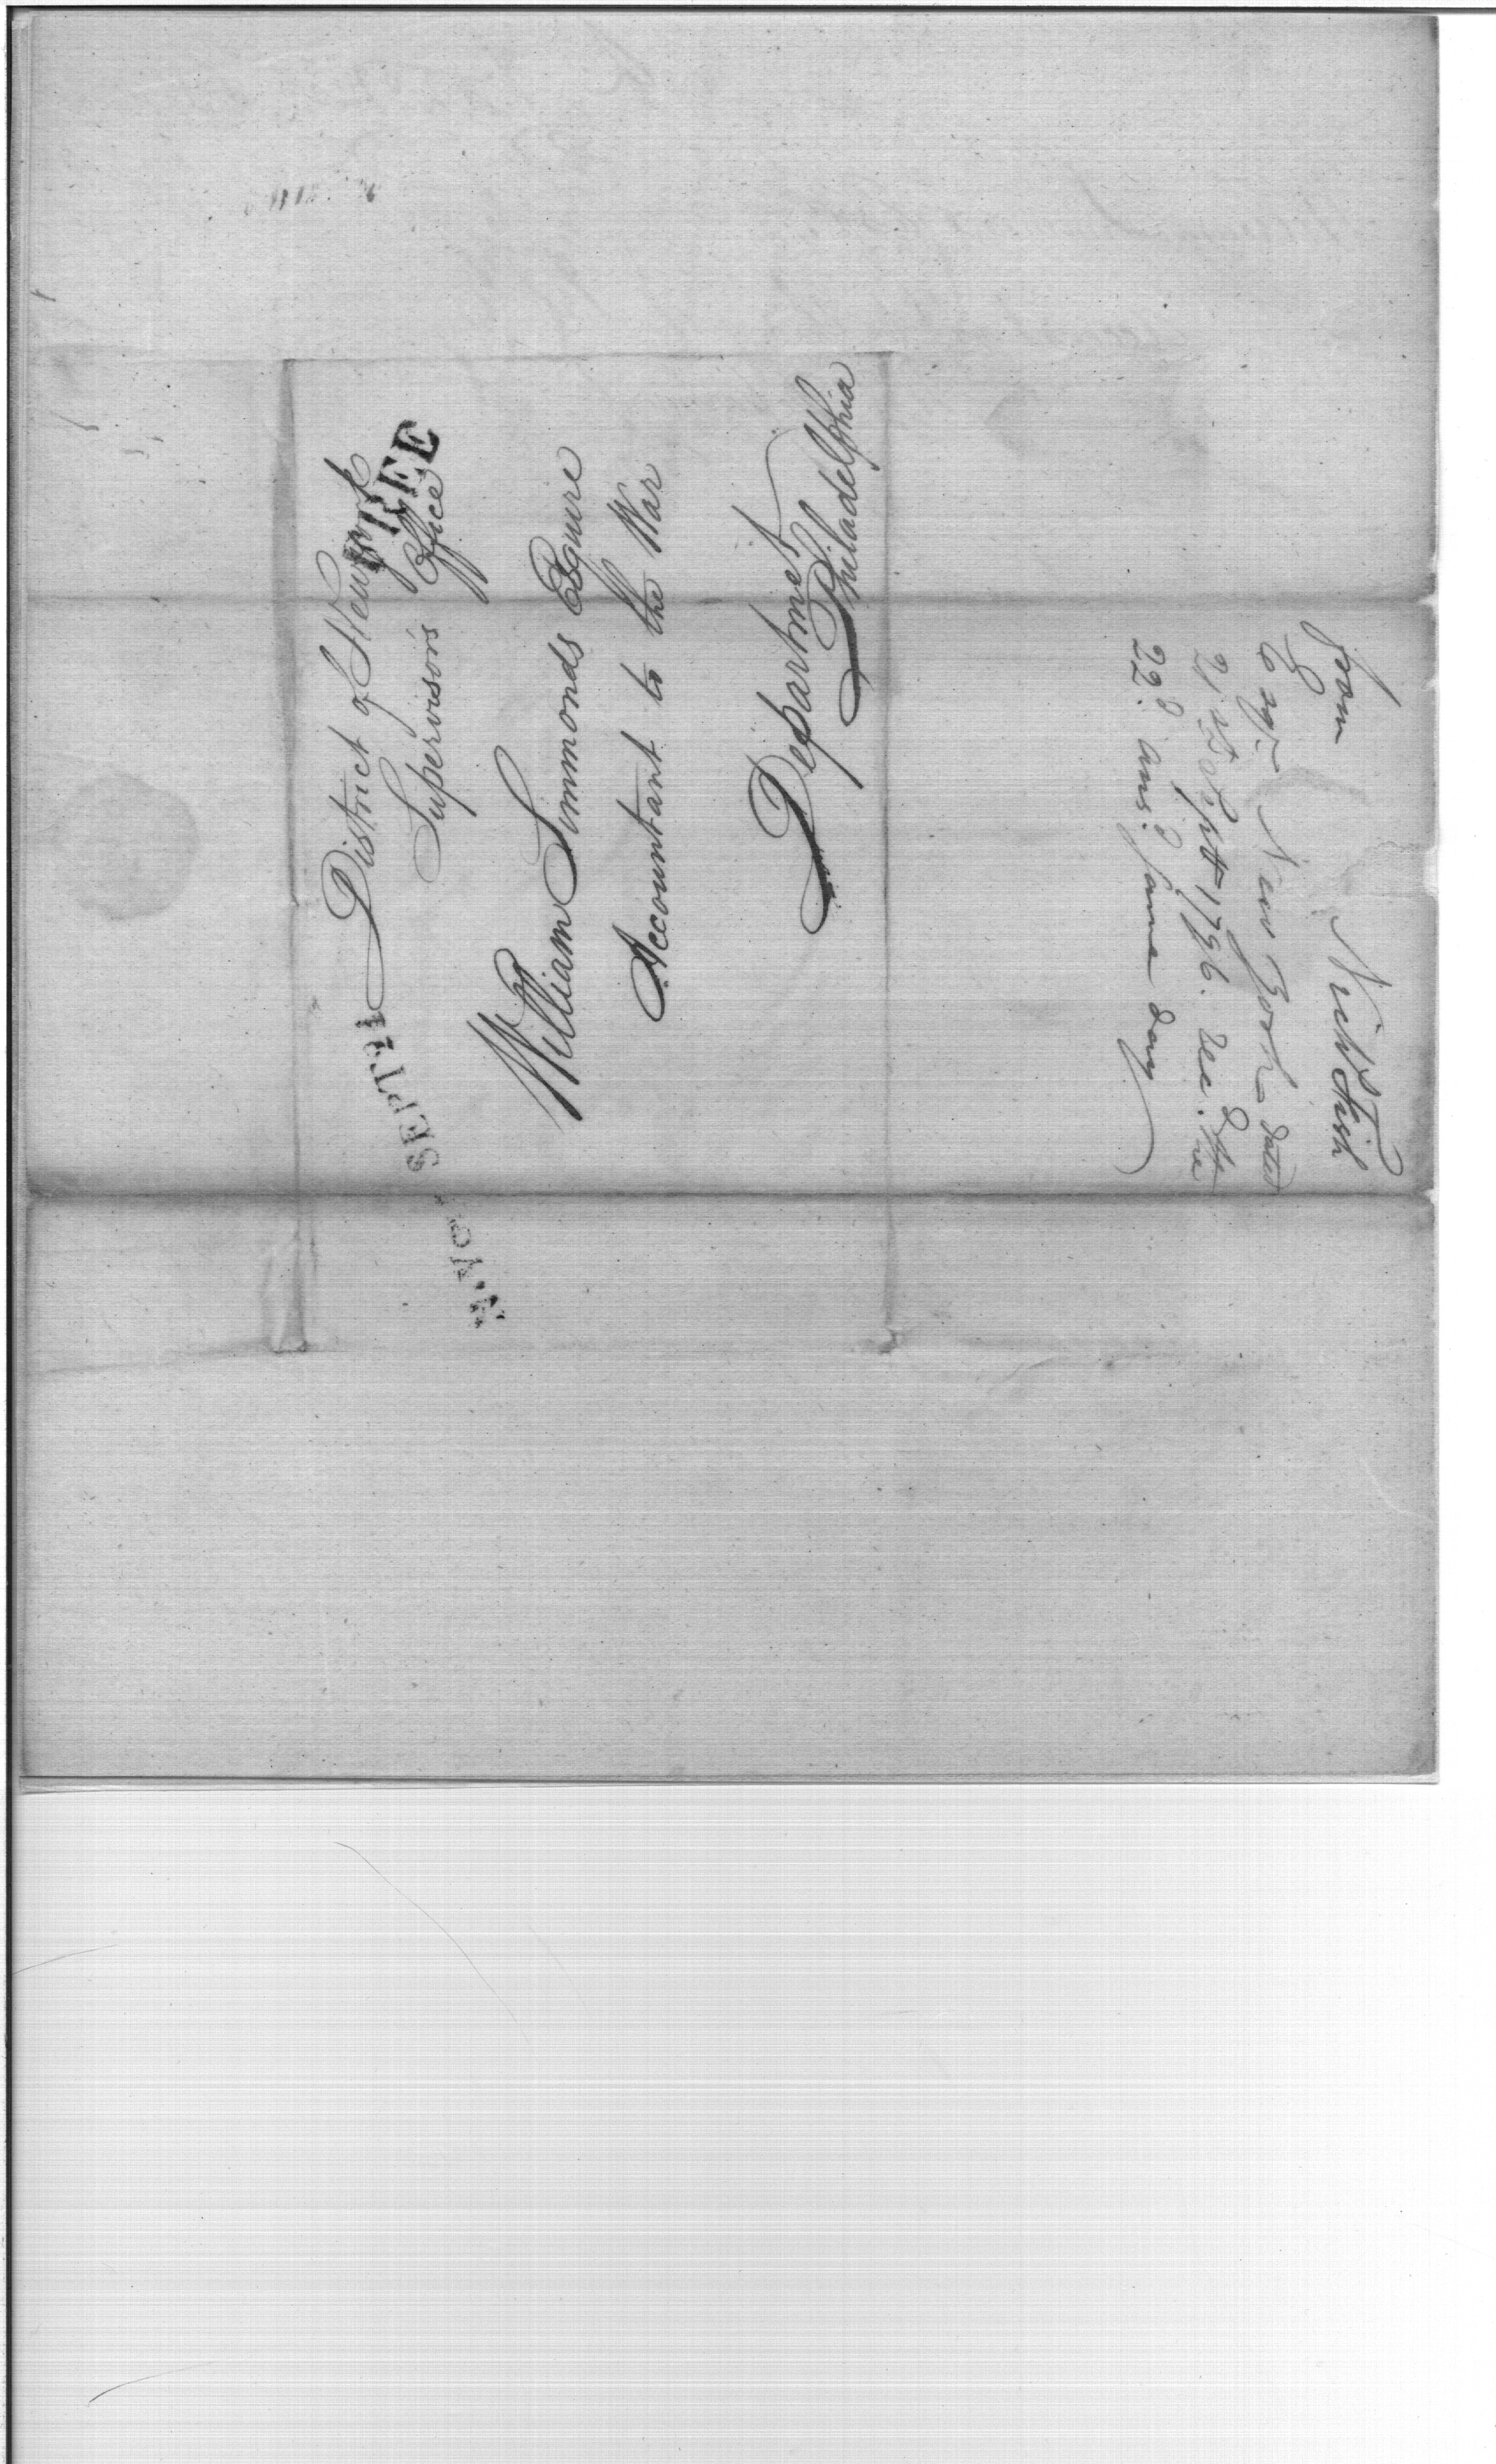 District of New York
Supervisors Office
FREE
N.YO SEPT 21
William Simmonds Esquire
Accountant to the War
Departmet
Philadelphia
from Nichs Fish
Esqr. New York dated
21st Sept 1796. Recd the
22d ansd same day